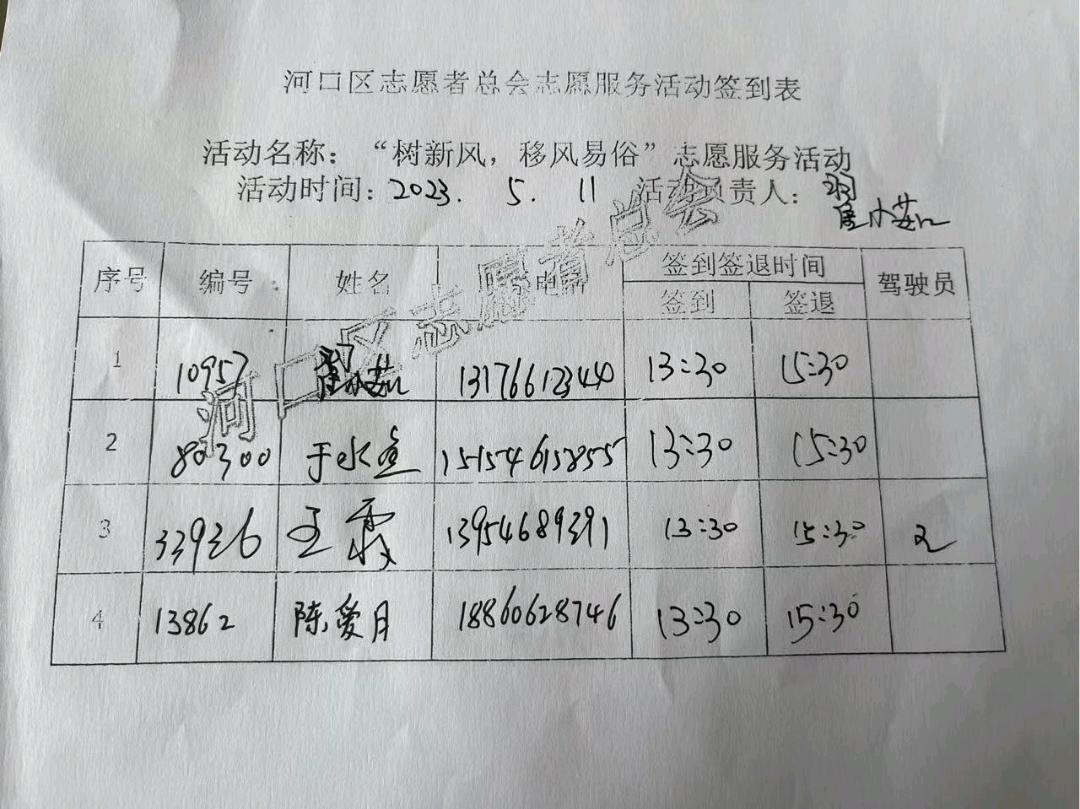 河口区志愿者总会志愿服务活动签到表
活动名称：“树新风，移风易俗”志愿服务活动
活动时间：2023. 5. 11 活动负责人：翟小茹
序号 编号 姓名 电话 签到签退时间 驾驶员
签到 签退
1 10957 翟小茹 13176612344 13:30 15:30
2 80300 于水鱼 15154615855 13:30 15:30
3 33936 王霞 13954689391 13:30 15:30 2
4 13862 陈爱月 18860628746 13:30 15:30
河口区志愿者总会